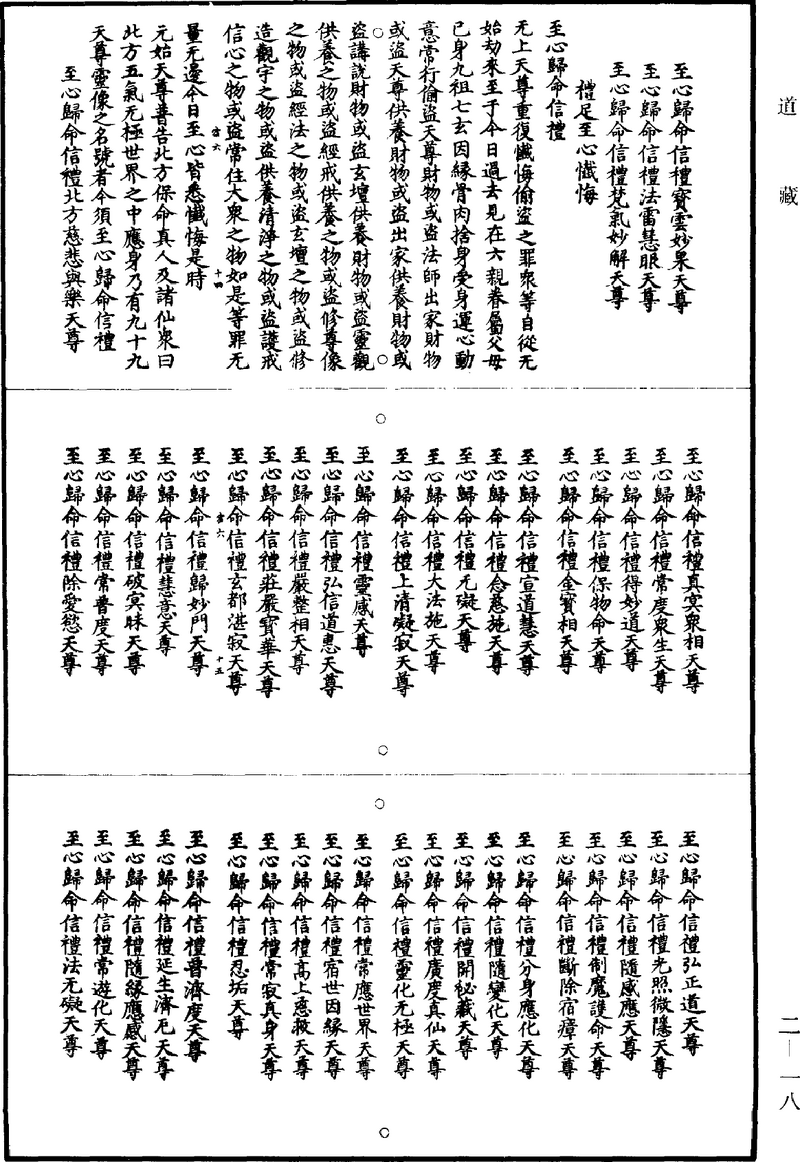 道藏
至心歸命信禮寶雲妙果天尊
至心歸命信禮法雷慧眼天尊
至心歸命信禮梵氣妙解天尊
禮足至心懺悔
至心歸命信禮
无上天尊重復懺悔偷盜之罪眾等自從无
始劫來至于今日過去見在六親眷屬父母
己身九祖七玄因緣骨肉捨身受身運心動
意常行偷盜天尊財物或盜法師出家財物
或盜天尊供養財物或盜出家供養財物或
盜講說財物或盜玄壇供養財物或盜靈觀
供養之物或盜經戒供養之物或盜修尊像
之物或盜經法之物或盜玄壇之物或盜修
造觀宇之物或盜供養清淨之物或盜護戒
信心之物或盜常住大眾之物如是等罪无
六 十四
量无邊今日至心皆悉懺悔是時
元始天尊普告北方保命真人及諸仙眾曰
北方五氣无極世界之中應身乃有九十九
天尊靈像之名號者今須至心歸命信禮
至心歸命信禮北方慈悲與樂天尊
至心歸命信禮真寂眾相天尊
至心歸命信禮常度眾生天尊
至心歸命信禮得妙道天尊
至心歸命信禮保物命天尊
至心歸命信禮金寶相天尊
至心歸命信禮宣道慧天尊
至心歸命信禮念慈施天尊
至心歸命信禮无礙天尊
至心歸命信禮大法施天尊
至心歸命信禮上清凝寂天尊
至心歸命信禮靈感天尊
至心歸命信禮弘信道惠天尊
至心歸命信禮嚴整相天尊
至心歸命信禮莊嚴寶華天尊
至心歸命信禮玄都湛寂天尊
六 十五
至心歸命信禮歸妙門天尊
至心歸命信禮慧意天尊
至心歸命信禮破冥昧天尊
至心歸命信禮常普度天尊
至心歸命信禮除愛慾天尊
至心歸命信禮弘正道天尊
至心歸命信禮光照微隱天尊
至心歸命信禮隨感應天尊
至心歸命信禮制魔護命天尊
至心歸命信禮斷除宿瘴天尊
至心歸命信禮分身應化天尊
至心歸命信禮隨變化天尊
至心歸命信禮開祕藏天尊
至心歸命信禮廣度真仙天尊
至心歸命信禮靈化无極天尊
至心歸命信禮常應世界天尊
至心歸命信禮宿世因緣天尊
至心歸命信禮高上慈救天尊
至心歸命信禮常寂真身天尊
至心歸命信禮忍垢天尊
至心歸命信禮普濟度天尊
至心歸命信禮延生濟厄天尊
至心歸命信禮隨緣應感天尊
至心歸命信禮常遊化天尊
至心歸命信禮法无礙天尊
二—一八